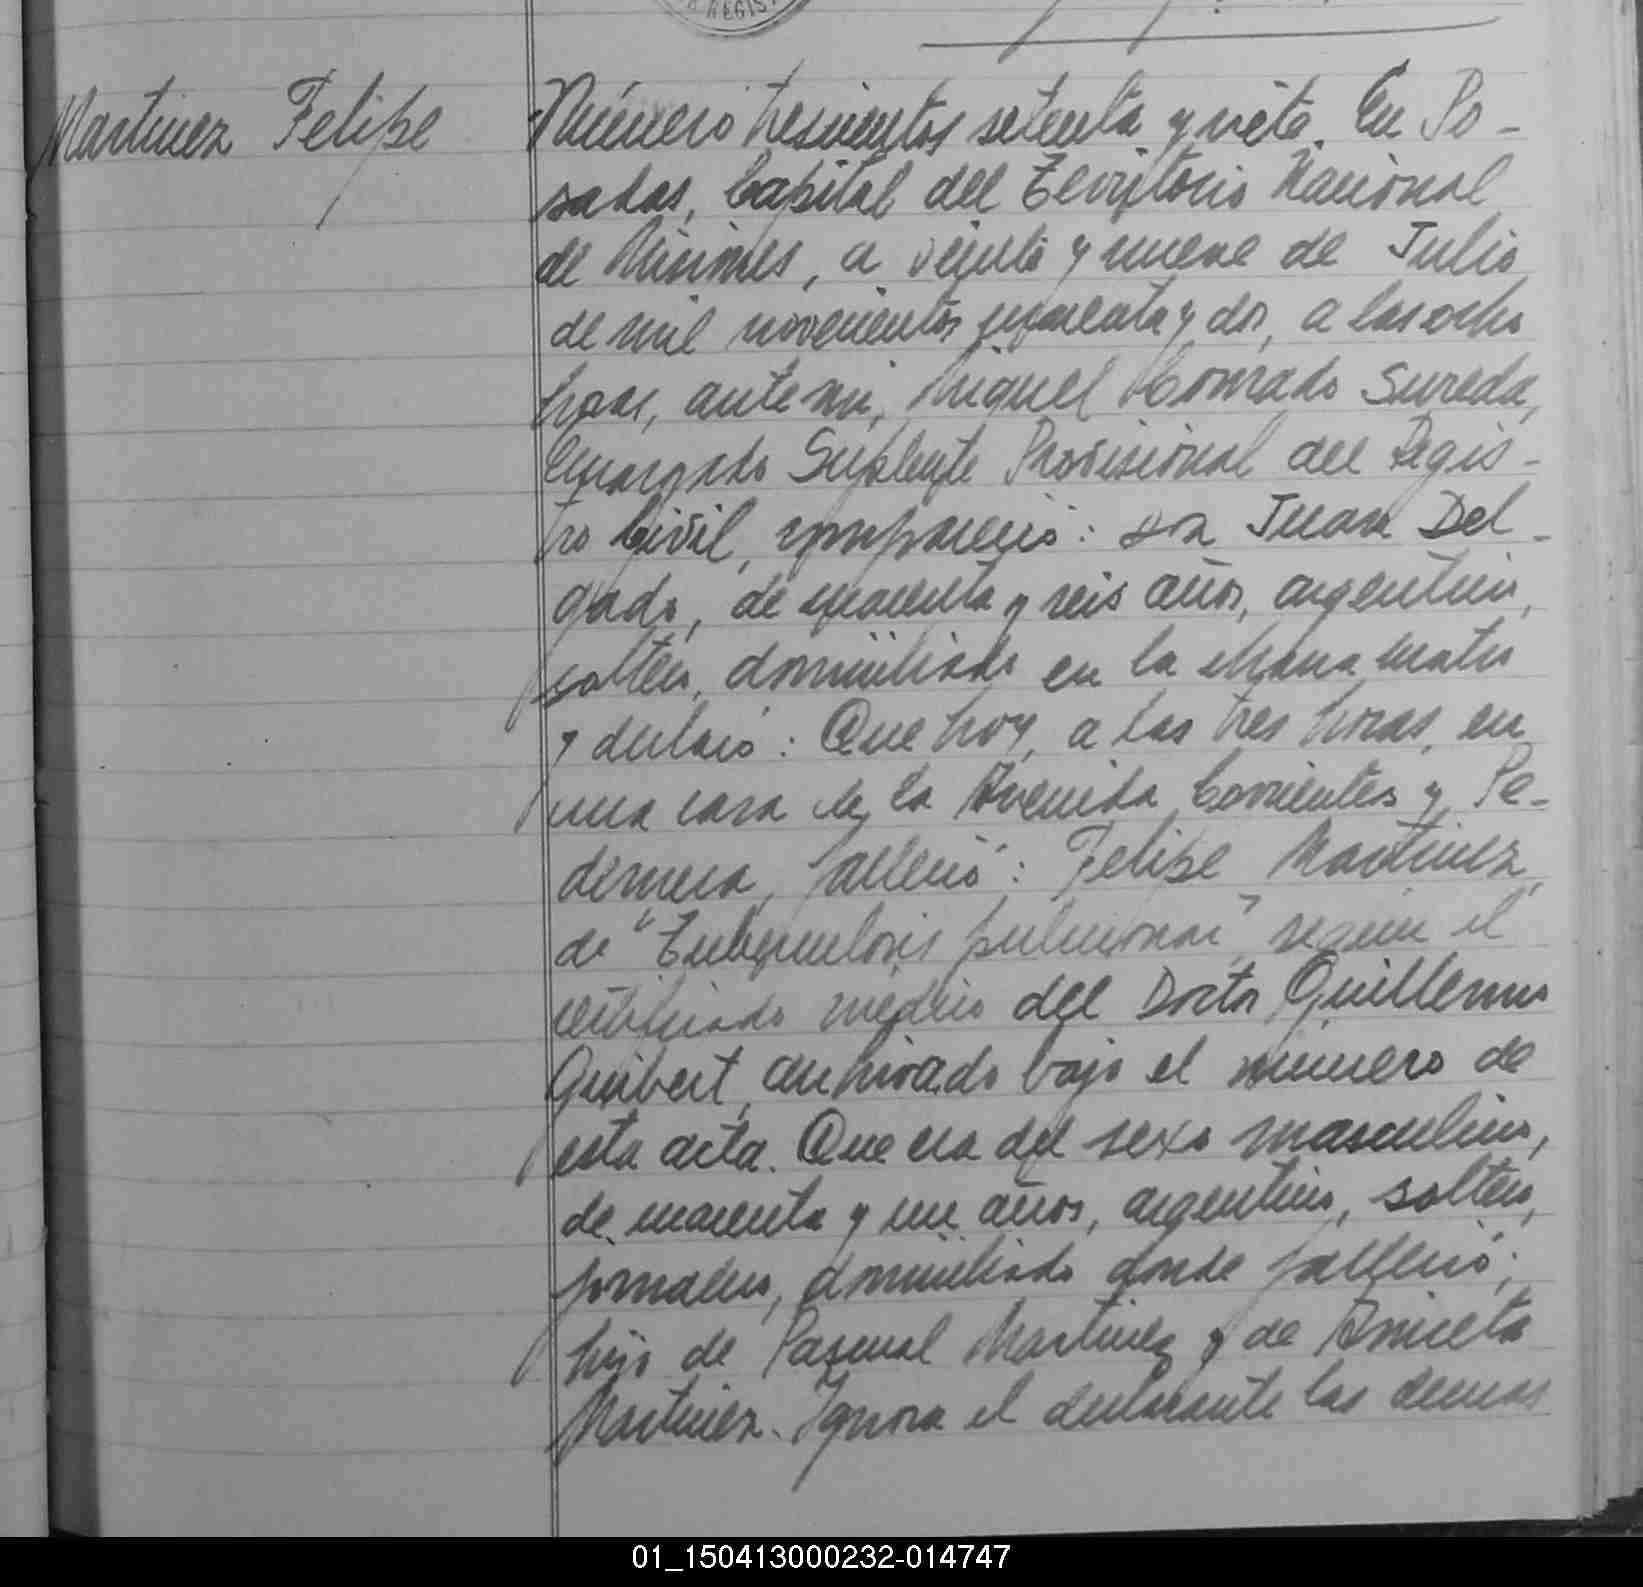 REGIS
Martinez Felipe
Número tresientos setenta y siete. En Po-
sadas, Capital del Territorio Nacional
de Misiones, a veinte y nueve de Julio
de mil novecientos cuarenta y dos, a las ocho
horas, ante mi, Miguel Conrado Sureda,
Encargado Suplente Provisional del Regis-
tro Civil, compareció: don Juan Del-
gado, de cuarenta y seis años, argentino,
soltero, domiciliado en la chacra
y declaró: Que hoy, a las tres horas, en
una casa de la Avenida Corrientes y Pe-
dernera, falleció: Felipe Martinez,
de "Tuberculosis pulmonar" según el
certificado médico del Doctor Guillermo
Guibert, archivado bajo el numero de
esta acta. Que era del sexo masculino,
de cuarenta y un años, argentino, soltero,
jornalero, domiciliado donde falleció;
hijo de Pascual Martinez y de Aniceta
Martinez. Ignora el declarante las demas
01_150413000232-014747